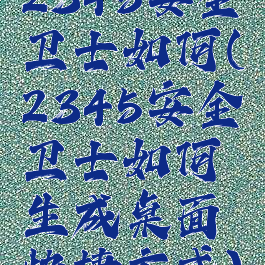 2345安全
卫士如何(
2345安全
卫士如何
生成桌面
快捷方式)